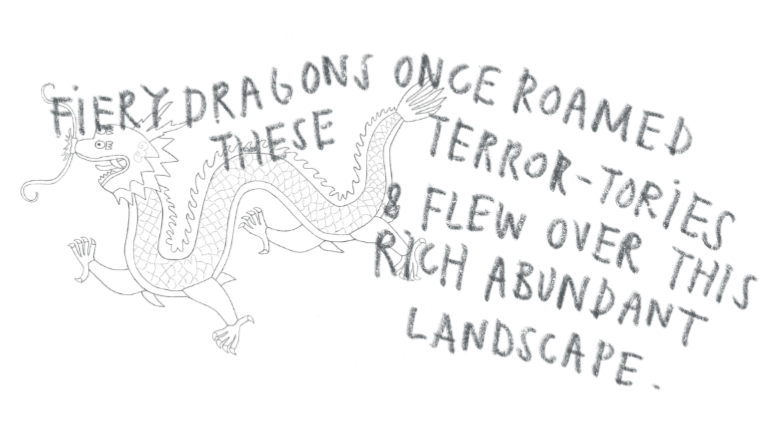 FiERY DRAGONS ONCE ROAMED
THESE TERROR-TORiES
& FLEW OVER THiS
RiCH ABUNDANT
LANDSCAPE.